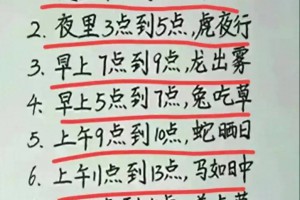 2. 夜里3点到5点,虎夜行
3. 早上7点到9点,龙出雾
4. 早上5点到7点,兔吃草
5. 上午9点到10点,蛇晒日
6. 上午11点到13点,马如日中